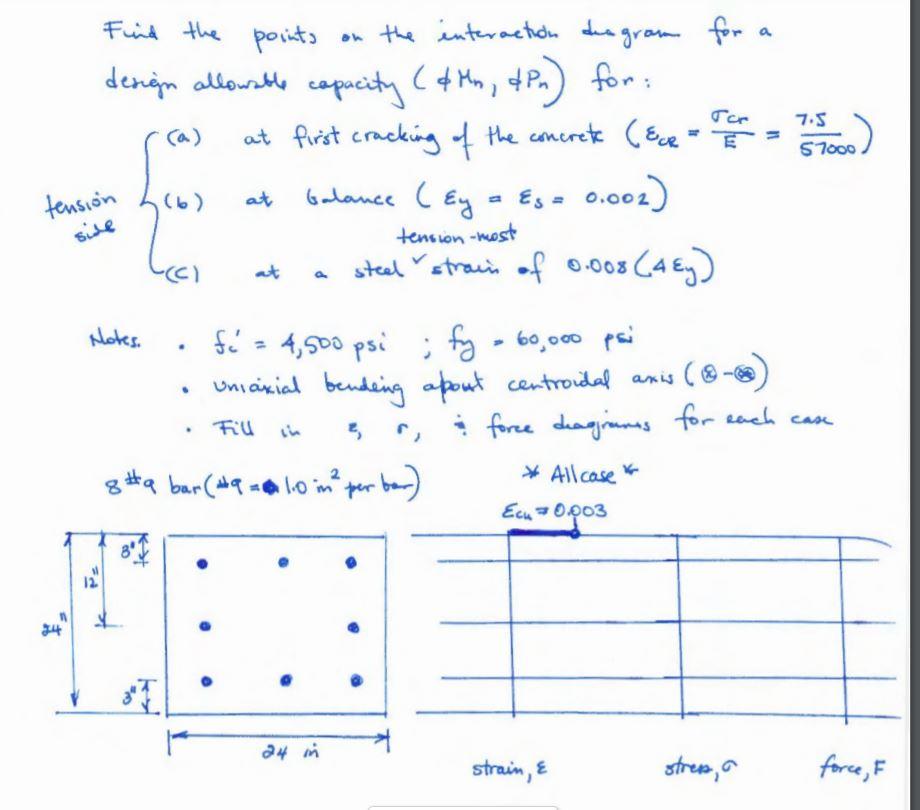 Find the points on the interaction diagram for a
design allowable capacity (ϕMn, ϕPn) for:
tension side
(a) at first cracking of the concrete (εCR = σcr/E = 7.5/57000)
(b) at balance (εy = εs = 0.002)
tension-most
(c) at a steel ✓ strain of 0.008 (4εy)
Notes. • fc' = 4,500 psi ; fy = 60,000 psi
• uniaxial bending about centroidal axis (⊗-⊗)
• Fill in ε, σ, & force diagrams for each case
8 #9 bar (#9 = 1.0 in² per bar)
* All case *
εcu = 0.003
3"
12"
24"
3"
24 in
strain, ε
stress, σ
force, F